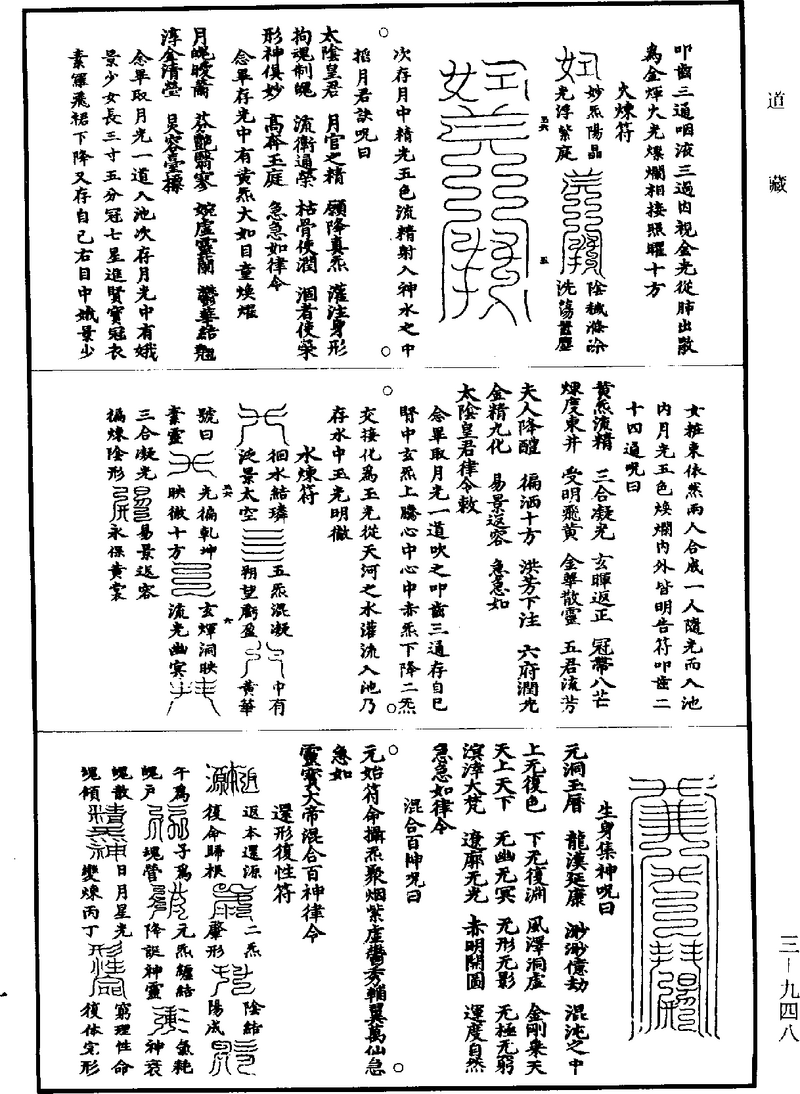 道藏
叩齒三通咽液三過內視金光從肺出散
為金煇火光爍爛相接照曜十方
火煉符
妙炁陽晶 光浮紫庭 陰穢滌除 洗蕩囂塵
次存月中精光五色流精射入神水之中
掐月君訣呪曰
太陰皇君 月宮之精 願降真炁 灌注身形
拘魂制魄 流衛通榮 枯骨使潤 涸者使榮
形神俱妙 高奔玉庭 急急如律令
念畢存光中有黃炁大如目童煥燿
月魄曖蕭 芬艷翳寥 婉虛靈蘭 鬱華結翹
淳金清瑩 炅容臺標
念畢取月光一道入池次存月光中有娥
景少女長三寸五分冠七星進賢寶冠衣
素羅飛裙下降又存自己右目中娥景少
女粧束依然兩人合成一人隨光而入池
內月光五色煥爛內外皆明告符叩齒二
十四通呪曰
黃炁流精 三合凝光 玄暉返正 冠帶八芒
煉度東井 受明飛黃 金華散靈 五君流芳
夫人降醴 徧洒十方 洪芳下注 六府潤光
金精九化 易景返容 急急如
太陰皇君律令敕
念畢取月光一道吹之叩齒三通存自己
腎中玄炁上騰心中心中赤炁下降二炁
交接化為玉光從天河之水灌流入池乃
存水中玉光明徹
水煉符
徊水結璘 泛景太空 五炁混凝 朔望虧盈 中有黃華
號曰素靈 光徧乾坤 映徹十方 玄煇洞映 流光幽冥
三合凝光 徧煉陰形 易景返容 永保黃裳
生身集神呪曰
元洞玉曆 龍漢延康 渺渺億劫 混沌之中
上无復色 下无復淵 風澤洞虛 金剛乘天
天上天下 无幽无冥 无形无影 无極无窮
溟涬大梵 遼廓无光 赤明開圖 運度自然
急急如律令
混合百神呪曰
元始符命攝炁聚烟紫虛鬱秀輔翼萬仙急
急如
靈寶大帝混合百神律令
還形復性符
返本還源 復命歸根 二炁 陰結 
午為 子為 元炁纏結 二氣耗
魄戶 魂管 降誕神靈 神哀
魄散 日月星光 窮理性命
魄傾 變煉丙丁 復体完形
三-九四八